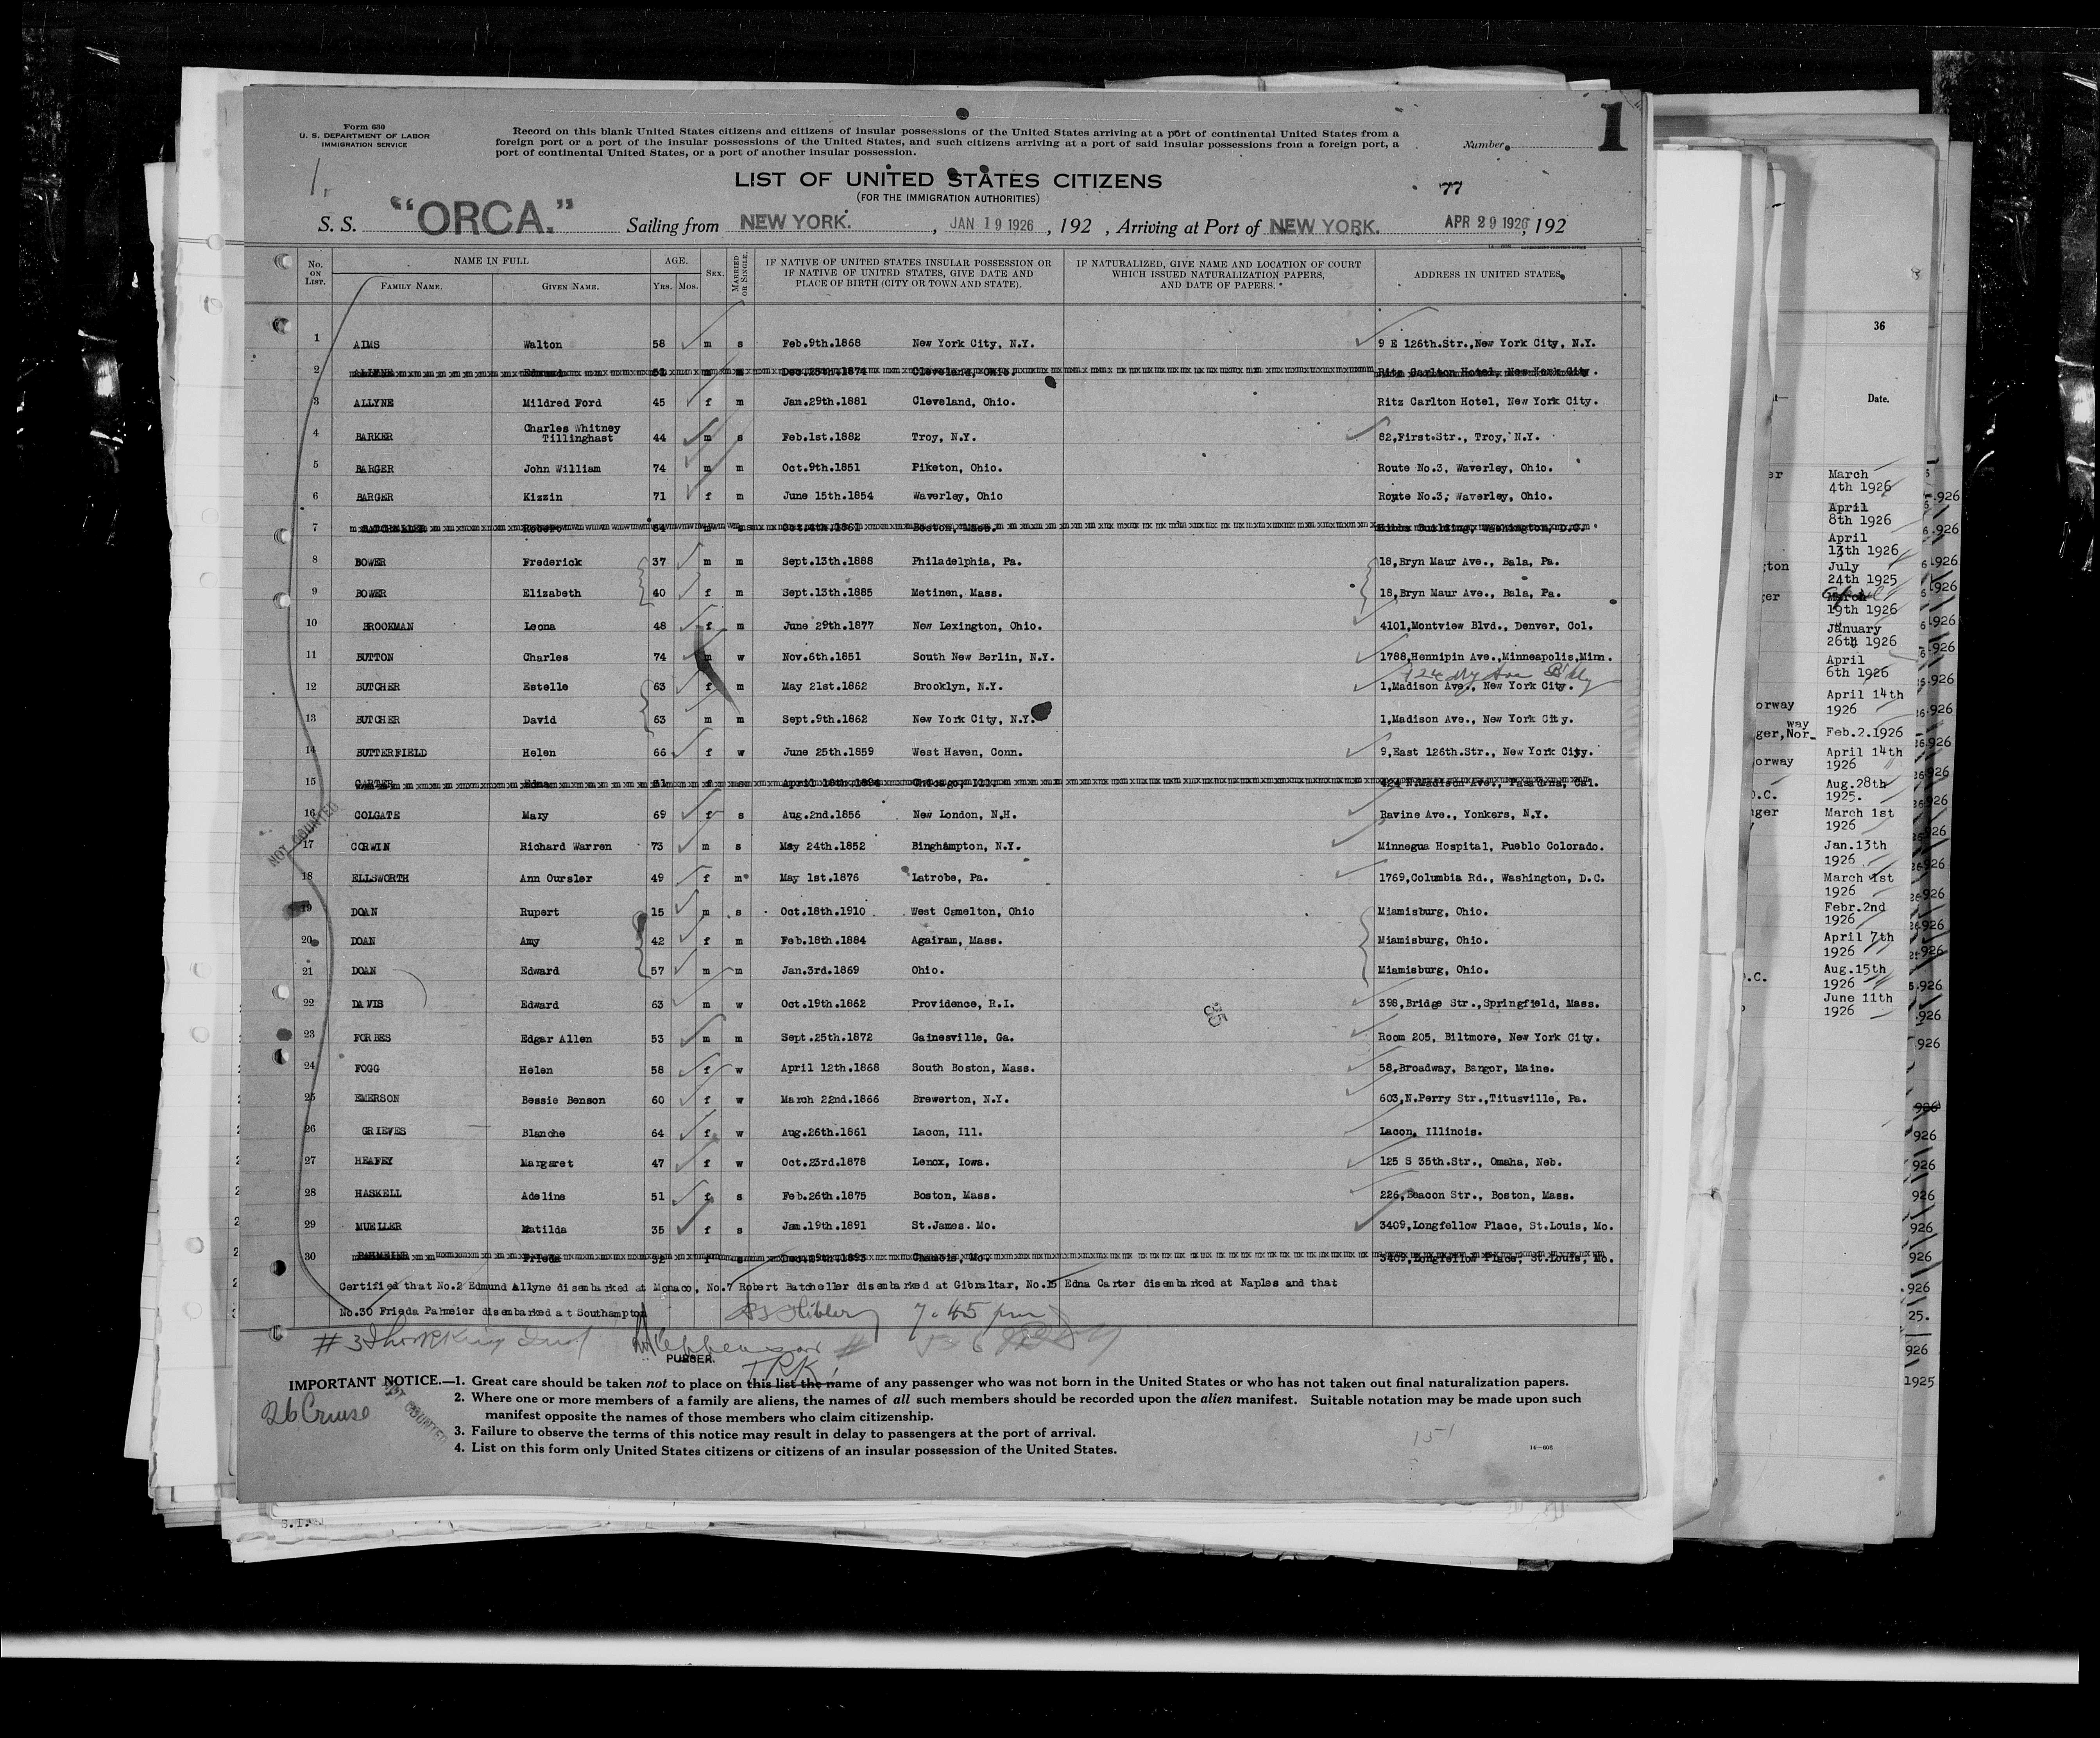 Form 630
U. S. DEPARTMENT OF LABOR
IMMIGRATION SERVICE
Record on this blank United States citizens and citizens of insular possessions of the United States arriving at a port of continental United States from a
foreign port or a port of the insular possessions of the United States, and such citizens arriving at a port of said insular possessions from a foreign port, a
port of continental United States, or a port of another insular possession.
Number
1
1.
LIST OF UNITED STATES CITIZENS
(FOR THE IMMIGRATION AUTHORITIES)
77
S. S. "ORCA." Sailing from NEW YORK. , JAN 19 1926 , 192 , Arriving at Port of NEW YORK. APR 29 1926, 192
No. ON LIST. NAME IN FULL FAMILY NAME. GIVEN NAME. AGE. YRS. MOS. SEX. MARRIED OR SINGLE. IF NATIVE OF UNITED STATES INSULAR POSSESSION OR IF NATIVE OF UNITED STATES, GIVE DATE AND PLACE OF BIRTH (CITY OR TOWN AND STATE). IF NATURALIZED, GIVE NAME AND LOCATION OF COURT WHICH ISSUED NATURALIZATION PAPERS, AND DATE OF PAPERS. ADDRESS IN UNITED STATES.
1 AIMS Walton 58 m s Feb.9th.1868 New York City, N.Y. 9 E 126th.Str.,New York City, N.Y.
2 ALLYNE Edmund 51 m m Dec.25th.1874 Cleveland, Ohio. Ritz Carlton Hotel, New York City.
3 ALLYNE Mildred Ford 45 f m Jan.29th.1881 Cleveland, Ohio. Ritz Carlton Hotel, New York City.
4 BARKER Charles Whitney Tillinghast 44 m s Feb.1st.1882 Troy, N.Y. 82,First.Str., Troy, N.Y.
5 BARGER John William 74 m m Oct.9th.1851 Piketon, Ohio. Route No.3, Waverley, Ohio.
6 BARGER Kizzin 71 f m June 15th.1854 Waverley, Ohio Route No.3, Waverley, Ohio.
7 BATCHELLER Robert 64 m Oct.4th.1861 Boston, Mass. Hibbs Building, Washington, D.C.
8 BOWER Frederick 37 m m Sept.13th.1888 Philadelphia, Pa. 18,Bryn Maur Ave., Bala, Pa.
9 BOWER Elizabeth 40 f m Sept.13th.1885 Metinen, Mass. 18,Bryn Maur Ave., Bala, Pa.
10 BROOKMAN Leona 48 f m June 29th.1877 New Lexington, Ohio. 4101,Montview Blvd., Denver, Col.
11 BUTTON Charles 74 m w Nov.6th.1851 South New Berlin, N.Y. 1788,Hennipin Ave.,Minneapolis,Minn.
12 BUTCHER Estelle 63 f m May 21st.1862 Brooklyn, N.Y. 1,Madison Ave., New York City.
13 BUTCHER David 63 m m Sept.9th.1862 New York City, N.Y. 1,Madison Ave., New York City.
14 BUTTERFIELD Helen 66 f w June 25th.1859 West Haven, Conn. 9,East 126th.Str., New York City.
15 CARTER Edna 31 f s April 18th.1894 Chicago, Ill. 424 N.Madison Ave., Pasadena, Cal.
16 COLGATE Mary 69 f s Aug.2nd.1856 New London, N.H. Ravine Ave., Yonkers, N.Y.
17 CORWIN Richard Warren 73 m s May 24th.1852 Binghampton, N.Y. Minnegua Hospital, Pueblo Colorado.
18 ELLSWORTH Ann Oursler 49 f m May 1st.1876 Latrobe, Pa. 1769,Columbia Rd., Washington, D.C.
19 DOAN Rupert 15 m s Oct.18th.1910 West Camelton, Ohio Miamisburg, Ohio.
20 DOAN Amy 42 f m Feb.18th.1884 Agairam, Mass. Miamisburg, Ohio.
21 DOAN Edward 57 m m Jan.3rd.1869 Ohio. Miamisburg, Ohio.
22 DAVIS Edward 63 m w Oct.19th.1862 Providence, R.I. 398,Bridge Str.,Springfield, Mass.
23 FORBES Edgar Allen 53 m m Sept.25th.1872 Gainesville, Ga. Room 205, Biltmore, New York City.
24 FOGG Helen 58 f w April 12th.1868 South Boston, Mass. 58,Broadway, Bangor, Maine.
25 EMERSON Bessie Benson 60 f w March 22nd.1866 Brewerton, N.Y. 603,N.Perry Str.,Titusville, Pa.
26 GRIEVES Blanche 64 f w Aug.26th.1861 Lacon, Ill. Lacon, Illinois.
27 HEAFEY Margaret 47 f w Oct.23rd.1878 Lenox, Iowa. 125 S 35th.Str., Omaha, Neb.
28 HASKELL Adeline 51 f s Feb.26th.1875 Boston, Mass. 226,Beacon Str., Boston, Mass.
29 MUELLER Matilda 35 f s Jan.19th.1891 St.James. Mo. 3409,Longfellow Place, St.Louis, Mo.
30 PAHMEIER Frieda 32 f s Dec.29th.1893 Chamois, Mo. 3409,Longfellow Place, St.Louis, Mo.
NOT COUNTED
35
Certified that No.2 Edmund Allyne disembarked at Monaco, No.7 Robert Batcheller disembarked at Gibraltar, No.15 Edna Carter disembarked at Naples and that
No.30 Frieda Pahmeier disembarked at Southampton
7.45 pm
PURSER.
IMPORTANT NOTICE.—1. Great care should be taken not to place on this list the name of any passenger who was not born in the United States or who has not taken out final naturalization papers.
2. Where one or more members of a family are aliens, the names of all such members should be recorded upon the alien manifest. Suitable notation may be made upon such
manifest opposite the names of those members who claim citizenship.
3. Failure to observe the terms of this notice may result in delay to passengers at the port of arrival.
4. List on this form only United States citizens or citizens of an insular possession of the United States.
26 Cruise
NOT COUNTED
151
14—606
36
Date.
March
4th 1926
April
8th 1926
April
13th 1926
July
24th 1925
19th 1926
January
26th 1926
April
6th 1926
April 14th
1926
Feb.2.1926
April 14th
1926
Aug.28th
1925.
March 1st
1926
Jan.13th
1926
March 1st
1926
Febr.2nd
1926
April 7th
1926
Aug.15th
1926
June 11th
1926